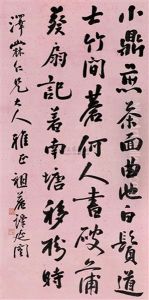 小鼎煎茶面曲池白鬚道
士竹間碁何人書破蒲
葵扇記著南塘移樹時
澤霖仁兄大人雅正 祖菴譚延闓